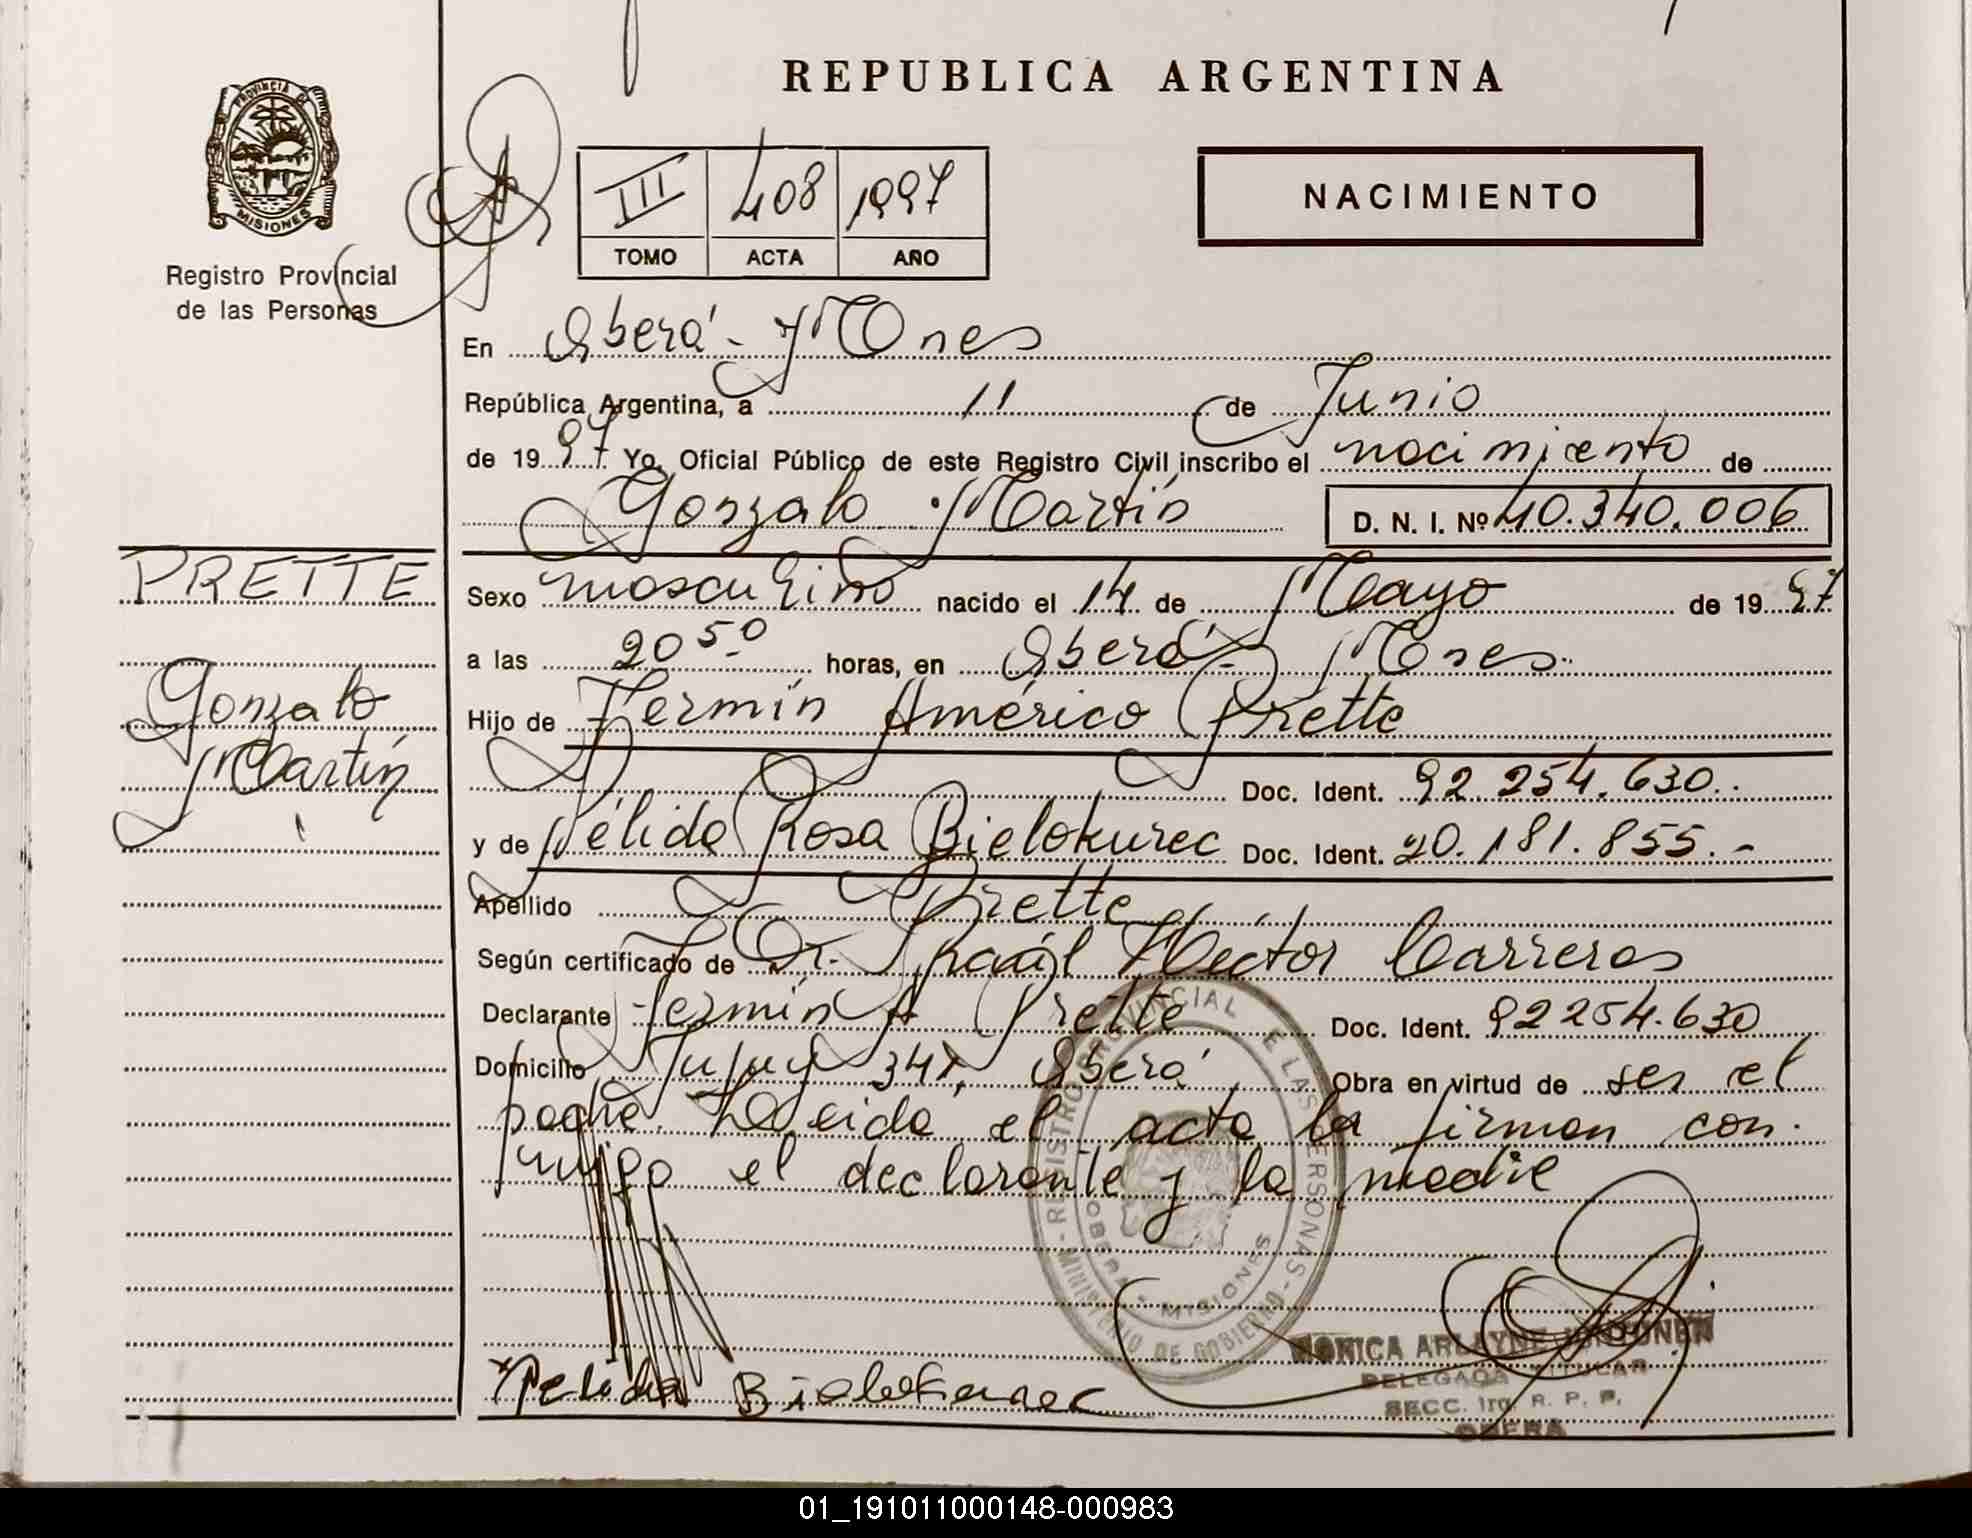 PROVINCIA DE
MISIONES
Registro Provincial
de las Personas
REPUBLICA ARGENTINA
III 408 1997
TOMO ACTA AÑO
NACIMIENTO
En Oberá - Mones
República Argentina, a 11 de Junio
de 1997 Yo, Oficial Público de este Registro Civil inscribo el nacimiento de
Gonzalo Martín D. N. I. Nº 40.340.006
PRETTE
Gonzalo
Martín
Sexo masculino nacido el 14 de Mayo de 1997
a las 20 50 horas, en Oberá - Mones
Hijo de Fermín Américo Prette
Doc. Ident. 92.254.630.
y de Nélida Rosa Bielokurec Doc. Ident. 20.181.855.-
Apellido Prette
Según certificado de Dr. Raúl Héctor Carreras
Declarante Fermín A Prette Doc. Ident. 92254.630
Domicilio Jujuy 341, Oberá Obra en virtud de ser el
padre. Leída el acta la firman con-
migo el declarante y la madre
REGISTRO PROVINCIAL DE LAS PERSONAS - MINISTERIO DE GOBIERNO -
OBERA - MISIONES
Nelida Bielokurec
MONICA ARLAYNE
DELEGADA TITULAR
SECC. 1ra. R. P. P.
OBERA
01_191011000148-000983